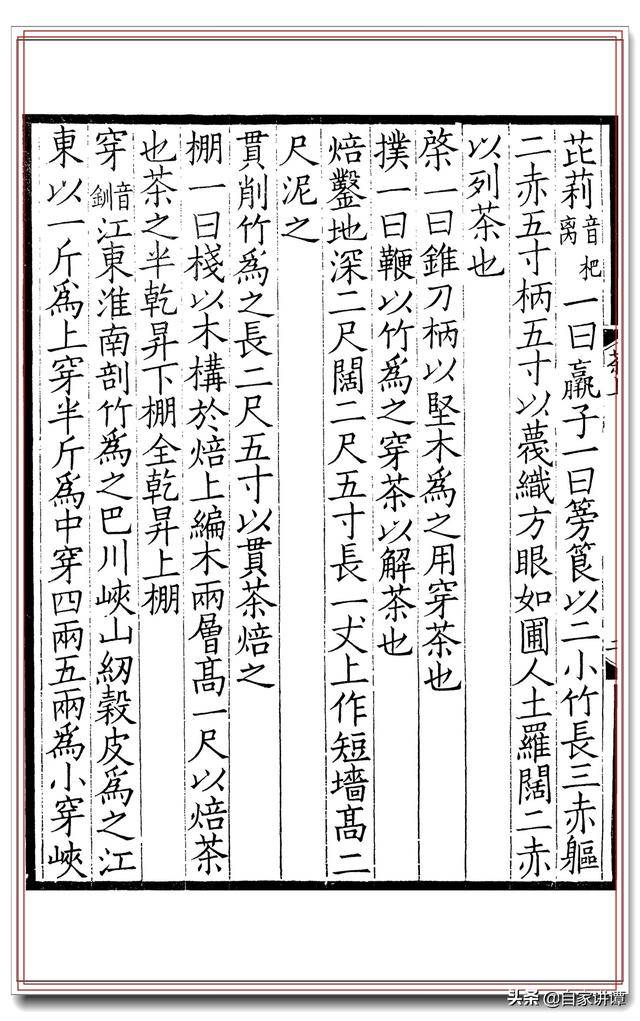 芘莉音杷离一曰羸子一曰篣筤以二小竹長三赤軀
二赤五寸柄五寸以篾織方眼如圃人土羅闊二赤
以列茶也
棨一曰錐刀柄以堅木為之用穿茶也
撲一曰鞭以竹為之穿茶以解茶也
焙鑿地深二尺闊二尺五寸長一丈上作短墻髙二
尺泥之
貫削竹為之長二尺五寸以貫茶焙之
棚一曰棧以木構於焙上編木兩層髙一尺以焙茶
也茶之半乾昇下棚全乾昇上棚
穿音釧江東淮南剖竹為之巴川峽山紉榖皮為之江
東以一斤為上穿半斤為中穿四兩五兩為小穿峽
头条 @自家讲谭